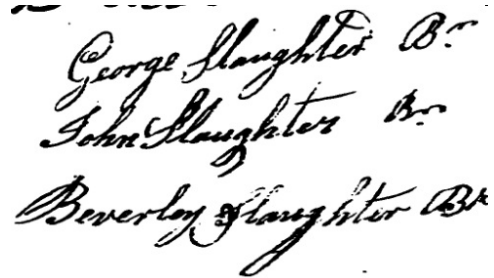 George Slaughter Br
John Slaughter Br
Beverley Slaughter Br